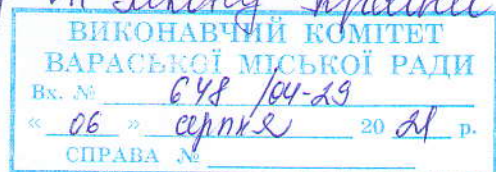 України
ВИКОНАВЧИЙ КОМІТЕТ
ВАРАСЬКОЇ МІСЬКОЇ РАДИ
Вх. № 648/04-29
« 06 » серпня 20 21 р.
СПРАВА №